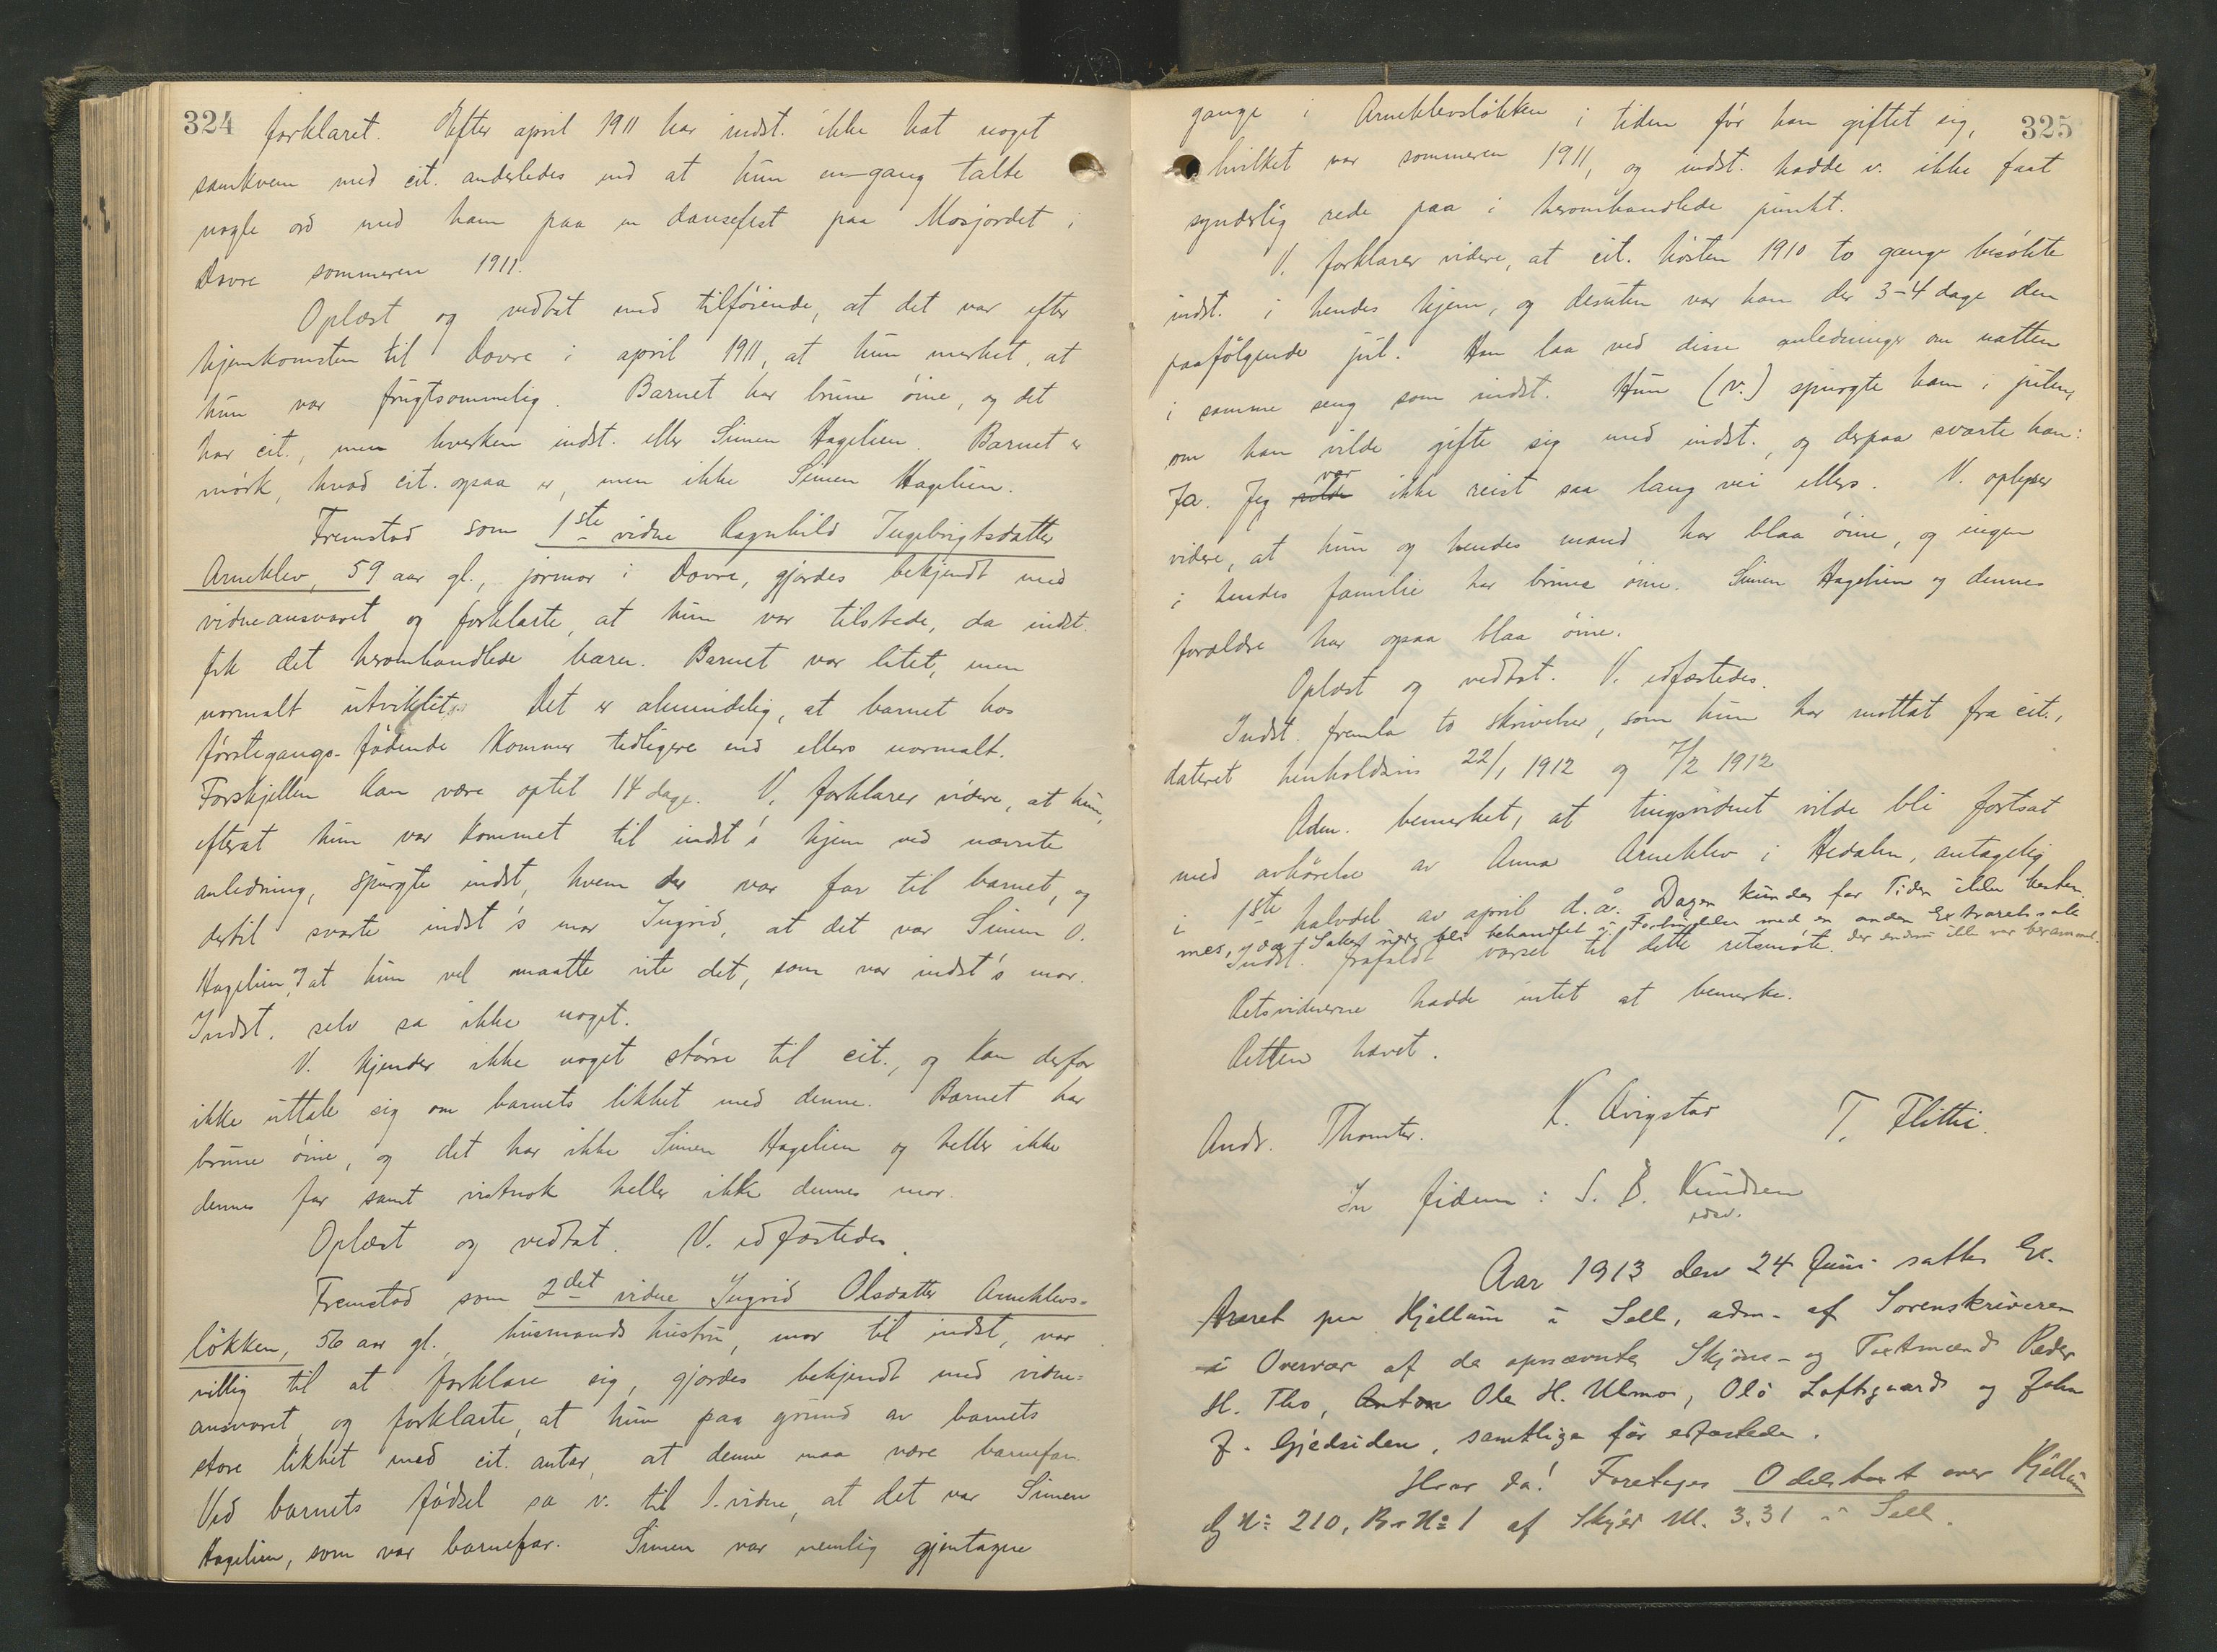 324
forklaret. Efter april 1911 har indst. ikke hat noget
samkvem med cit. anderledes end at hun en-gang talte
nogle ord med ham paa en dansefest paa Mosjordet i
Dovre sommeren 1911.
Oplæst og vedtat med tilføiende, at det var efter
hjemkomsten til Dovre i april 1911, at hun merket, at
hun var frugtsommelig. Barnet har brune øine, og det
har cit., men hverken indst. eller Simen Hagelien. Barnet er
mørk, hvad cit. ogsaa er, men ikke Simen Hagelien.
Fremstod som 1ste vidne Ragnhild Ingebrigtsdatter
Arneklev, 59 aar gl., jormor i Dovre, gjordes bekjendt med
vidneansvaret og forklarte, at hun var tilstede, da indst.
fik det heromhandlede barn. Barnet var litet, men
normalt utviklet. Det er almindelig, at barnet hos
førstegangs-fødende kommer tidligere end ellers normalt.
Forskjellen kan være optil 14 dage. V. forklarer videre, at hun,
efterat hun var kommet til indst's hjem ved nævnte
anledning, spurgte indst, hvem der var far til barnet, og
dertil svarte indst's mor Ingrid, at det var Simen O.
Hagelien, og at hun vel maatte vite det, som var indst's mor.
Indst. selv sa ikke noget.
V. kjender ikke noget større til cit., og kan derfor
ikke uttale sig om barnets likhet med denne. Barnet har
brune øine, og det har ikke Simen Hagelien og heller ikke
dennes far samt vistnok heller ikke dennes mor.
Oplæst og vedtat. V. edfæstedes.
Fremstod som 2det vidne Ingrid Olsdatter Arneklevs-
løkken, 56 aar gl., husmands hustru, mor til indst, var
villig til at forklare sig, gjordes bekjendt med vidne-
ansvaret og forklarte, at hun paa grund av barnets
store likhet med cit. antar, at denne maa være barnefar.
Ved barnets fødsel sa v. til 1. vidne, at det var Simen
Hagelien, som var barnefar. Simen var nemlig gjentagne
325
gange i Arneklevsløkken i tiden før han giftet sig,
hvilket var sommeren 1911, og indst. hadde v. ikke faat
synderlig rede paa i heromhandlede punkt.
V. forklarer videre, at cit. høsten 1910 to gange besøkte
indst. i hendes hjem, og desuten var han der 3-4 dage den
paafølgende jul. Han laa ved disse anledninger om natten
i samme seng som indst. Hun (v.) spurgte ham i julen,
om han vilde gifte sig med indst., og derpaa svarte han:
Ja. Jeg vilde var ikke reist saa lang vei ellers. V. oplyser
videre, at hun og hendes mand har blaa øine, og ingen
i hendes familie har brune øine. Simen Hagelien og dennes
forældre har ogsaa blaa øine.
Oplæst og vedtat. V. edfæstedes.
Indst. fremla to skrivelser, som hun har mottat fra cit.,
dateret henholdsvis 22/1 1912 og 7/2 1912
Adm. bemerket, at tingsvidnet vilde bli fortsat
med avhørelse av Anna Arneklev i Hedalen, antagelig
i 1ste halvdel av april d.å. Dagen kundes for Tiden ikke bestem
mes, da Saken bli behandlet i Forbindelse med en anden Extraretssak
der endnu ikke var berammet.
Indst. frafaldt varsel til dette retsmøte.
Retsvidnerne hadde intet at bemerke.
Retten hævet.
Andr. Thomter. K. Qvigstad T. Flittie.
In fidem: S. B. Knudsen
edsv.
Aar 1913 den 24 Juni sattes Ex-
traret paa Kjellum i Sell, adm. af Sorenskriveren
i Overvær af de opnævnte Skjøns- og Taxtmænd Peder
H. Tho, Anton Ole H. Ulmo, Ole Loftsgaard og John
J. Gjedsiden, samtlige før edfæstede.
Hvor da! Foretages Odelstaxt over Kjellum
G No 210, Br No 1 af Skyld M. 3.31 i Sell.